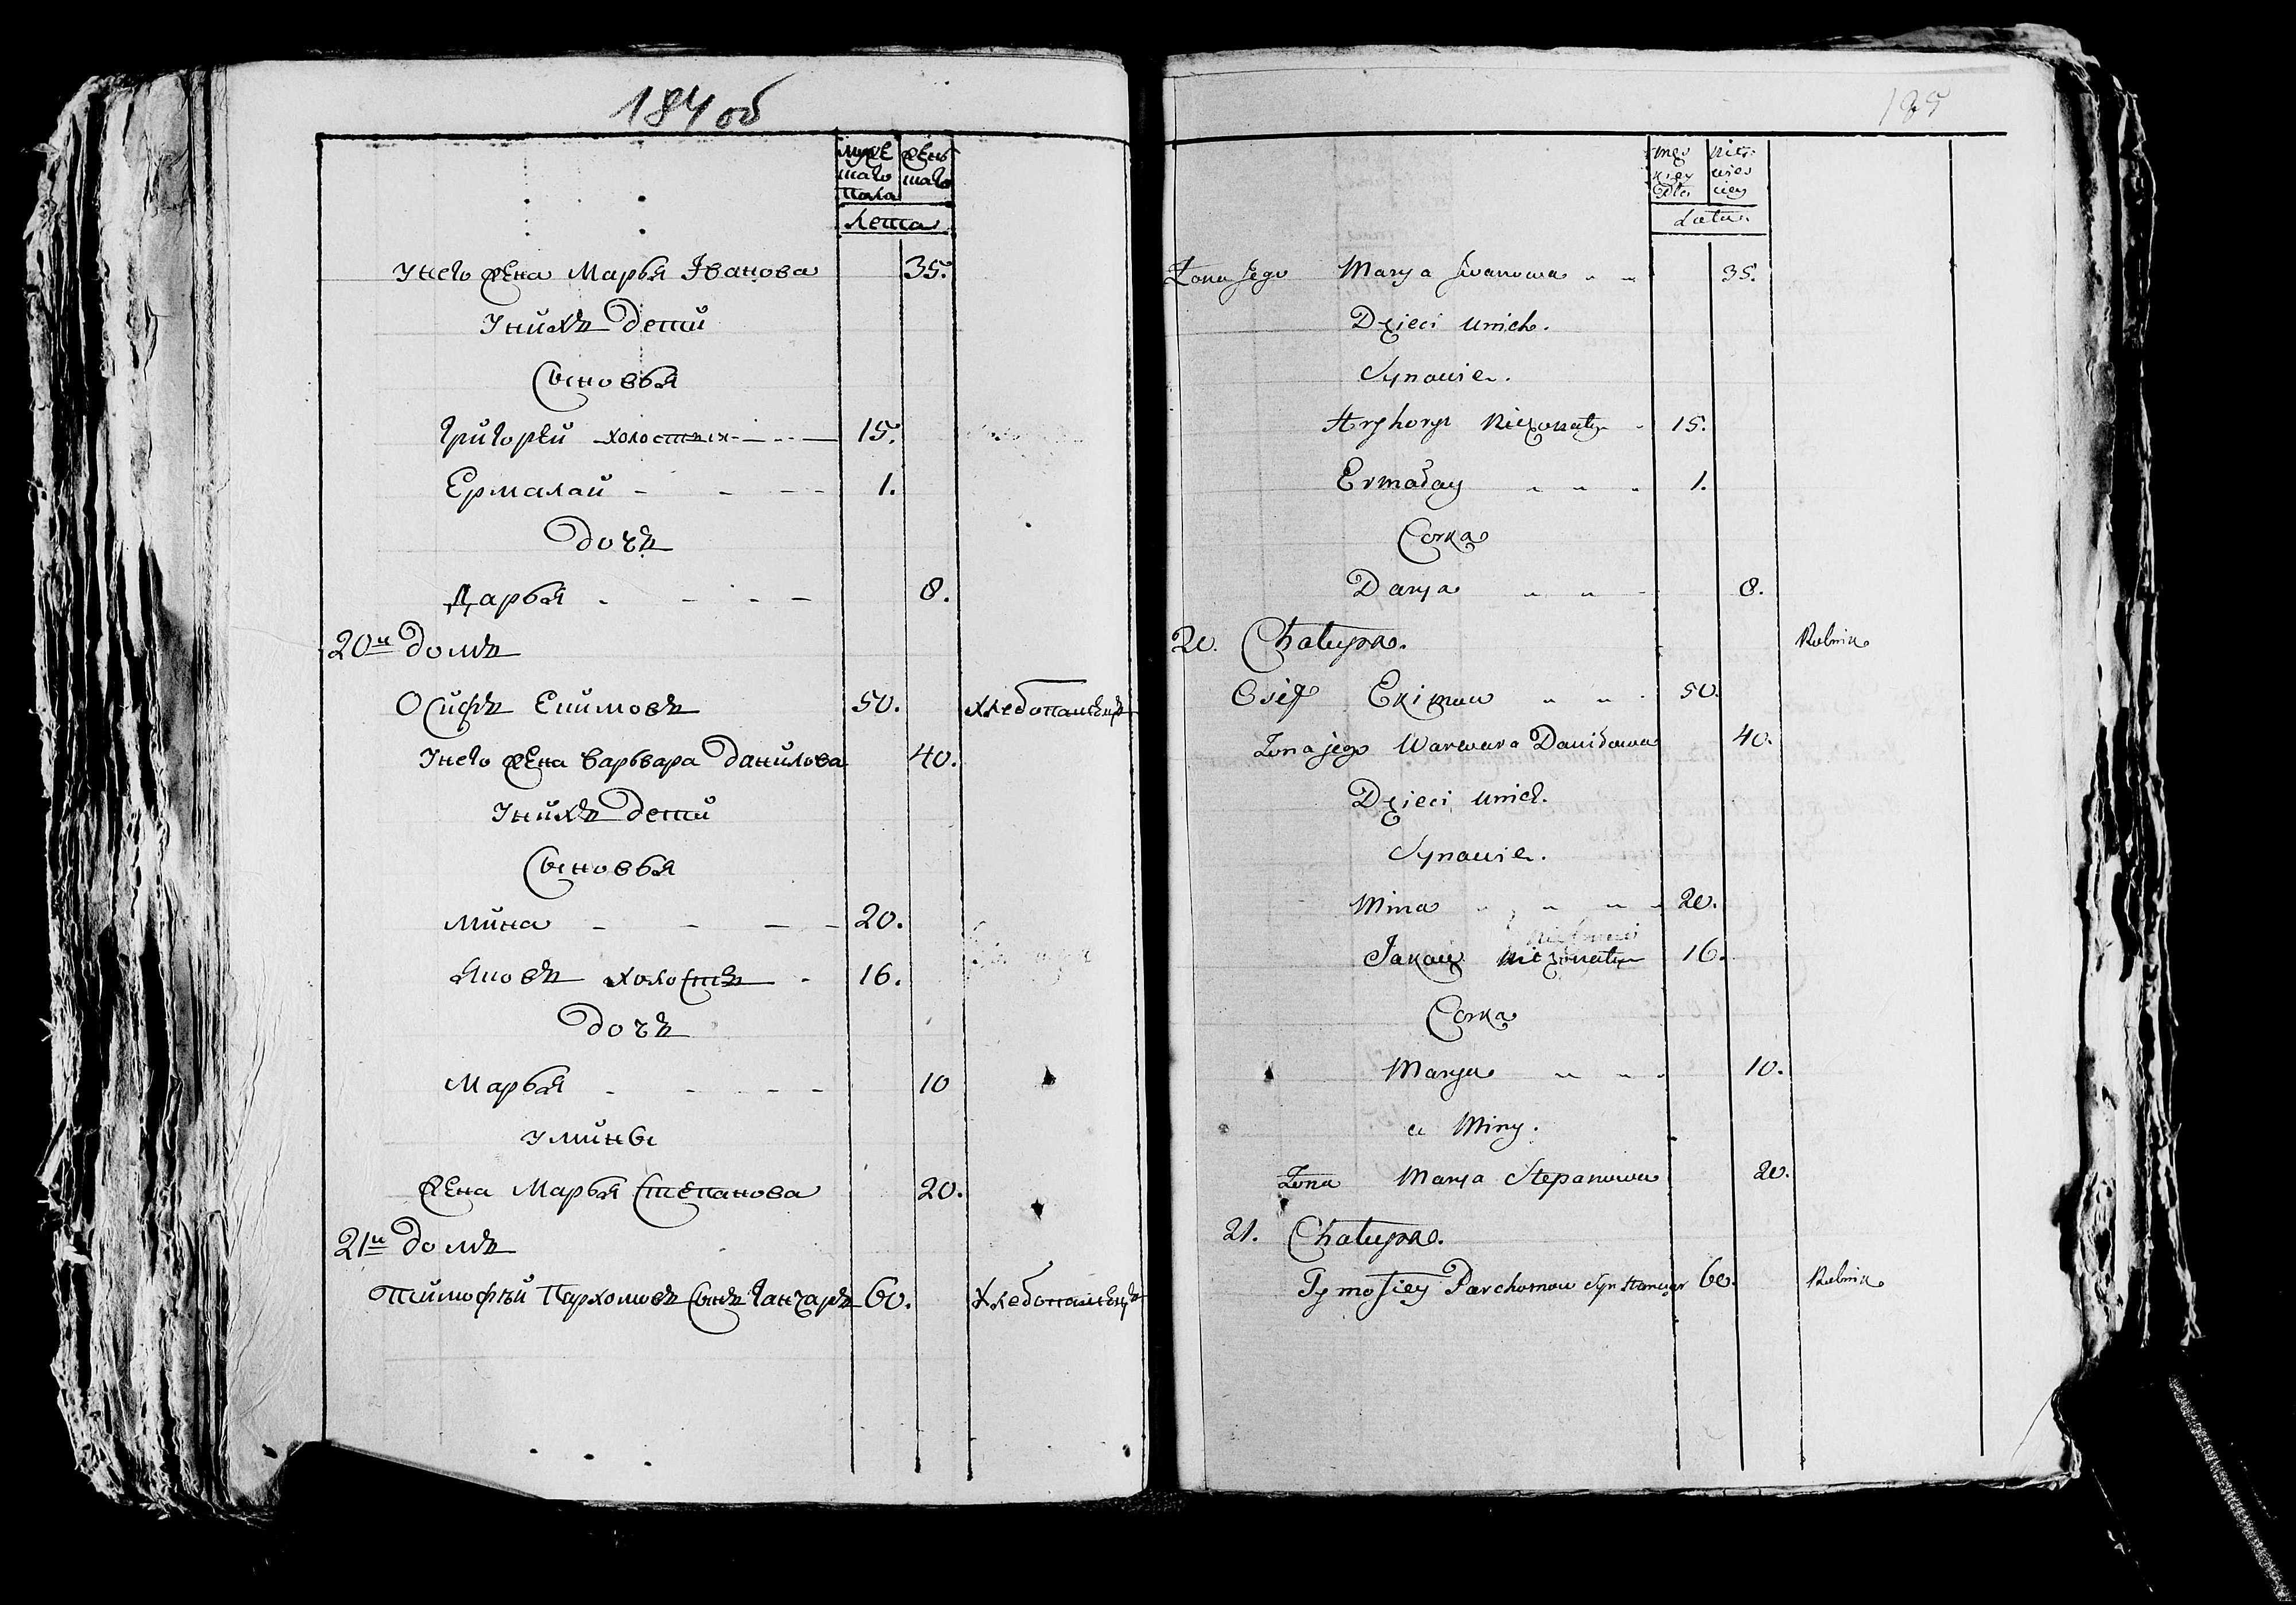 184 об
муже женъ
скаго скаго
пола
лета
У него жена Марья Іванова 35.
У нихъ дети
Сыновья
Григорей холостыи 15.
Ермалай 1.
дочь
Дарья 8.
20й домъ
Осипъ Екимовъ 50. хлебопашецъ
У него жена Варвара Данилова 40.
У нихъ дети
Сыновья
Мина 20.
Яковъ холостъ 16.
дочь
Марья 10
У Мины
жена Марья Степанова 20.
21й домъ
Тимофей Пархомовъ сынъ Ганчаръ 60. хлебопашецъ
185
lata
Żona Jego Marya Jwanowa 35.
Dzieci u nich.
Synowie.
Hryhory Nieżonaty 15.
Ermołay 1.
Corka
Darya 8.
20. Chałupa. Rolnik
Osif Ekimow 50.
Żona jego Warwara Daniłowa 40.
Dzieci u nich.
Synowie.
Mina 20.
Jakow nieżonaty 16.
Corka
Marya 10.
u Miny.
Żona Marya Stepanowa 20.
21. Chałupa.
Tymofiey Parchomow Syn Hanczar 60. Rolnik